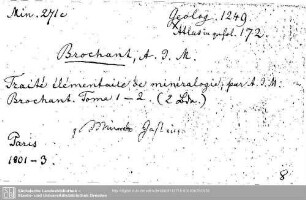 Min. 271 c
Geolog. 1249.
172.
Brochant, A. J. M.
Traité élémentaire de minéralogie, par A. J. M.
Brochant. Tome 1-2. (2 Bde.)
Paris
1801-3.
8
Sächsische Landesbibliothek -
Staats- und Universitätsbibliothek Dresden